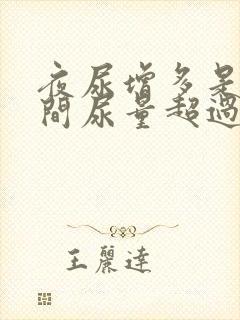 夜尿增多是
間尿量超過
王麗達